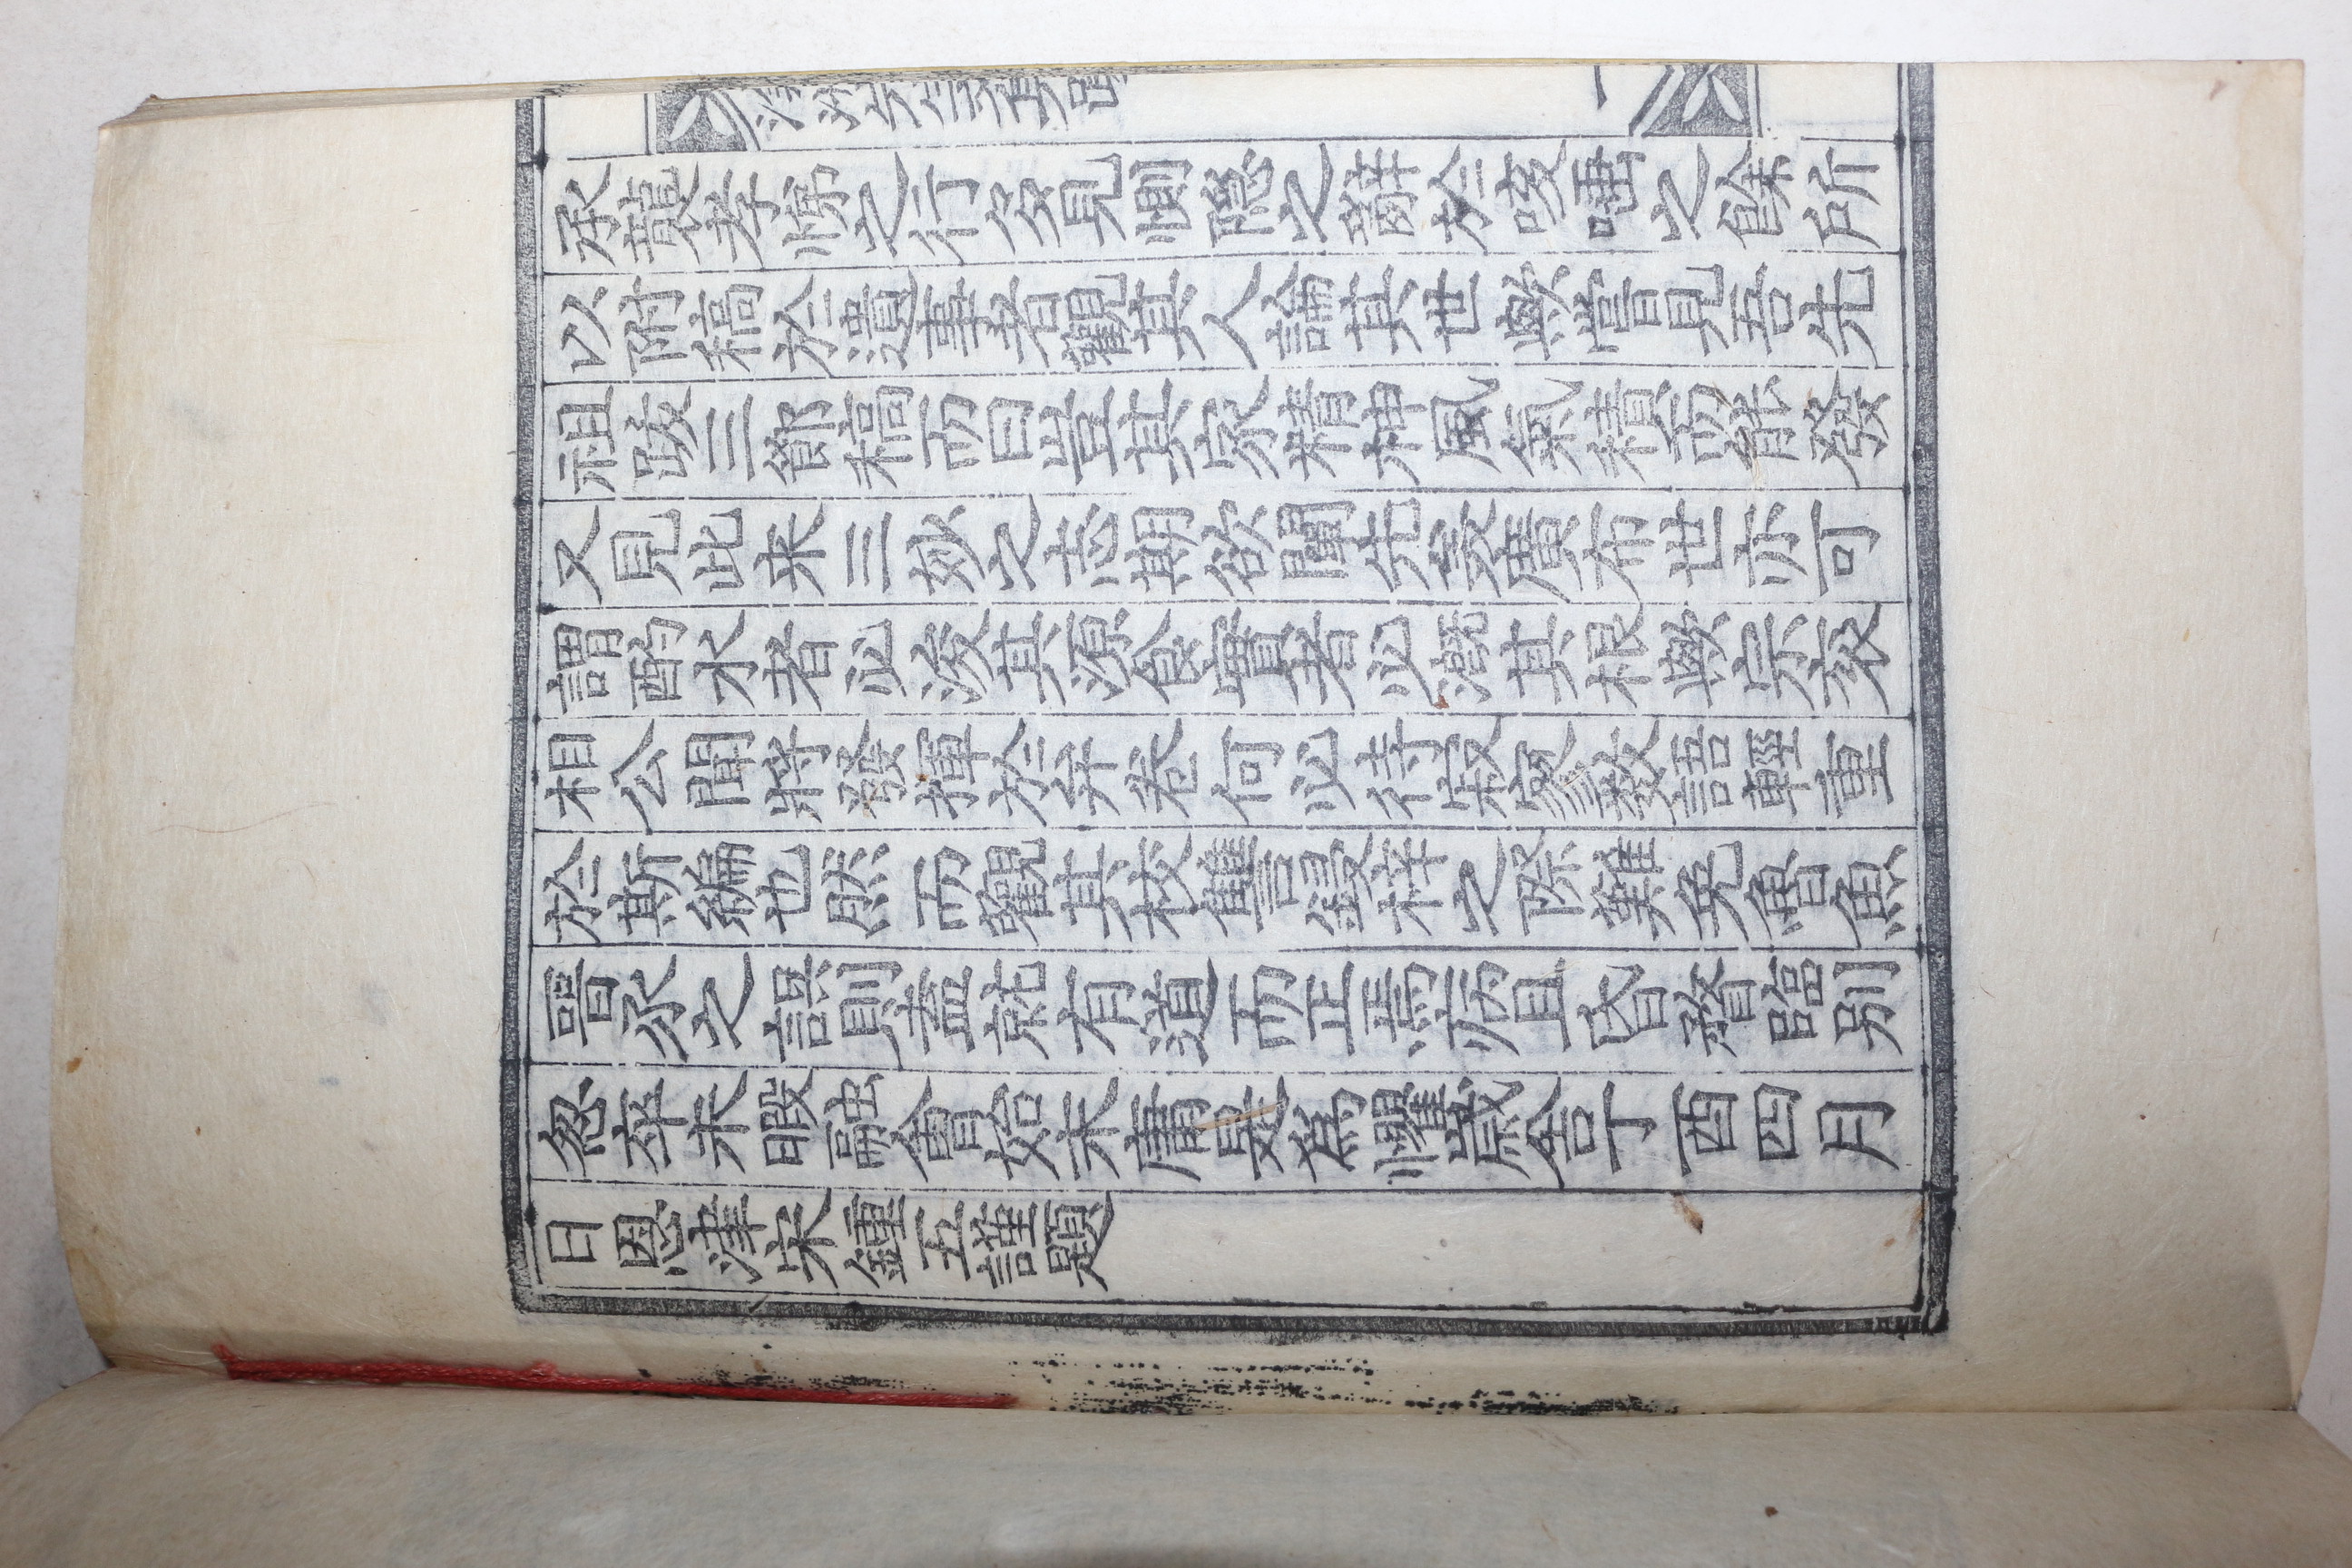 承襲孝悌之行多見惻隐之辭於咳唾之餘所
以附稿於遺事者觀其人論其世歟嘗見吾先
祖跋三節稿而曰豈其家精神風氣積而能發
又見此来三妙之志期欲闡先美廣布世亦可
謂酌水者必浚其源食實者必漑其根歟宗衮
相公聞將發揮於弁卷何必待寂寥数語輕重
於斯編也然而觀其校讐鋟梓之際難免魯魚
晋豕之誤則盍就有道而正焉病且昏瞀臨别
忽卒未暇融會始末庸是爲懼歲舍丁酉四月
日恩津宋鍾五謹題
先生文集跋
一